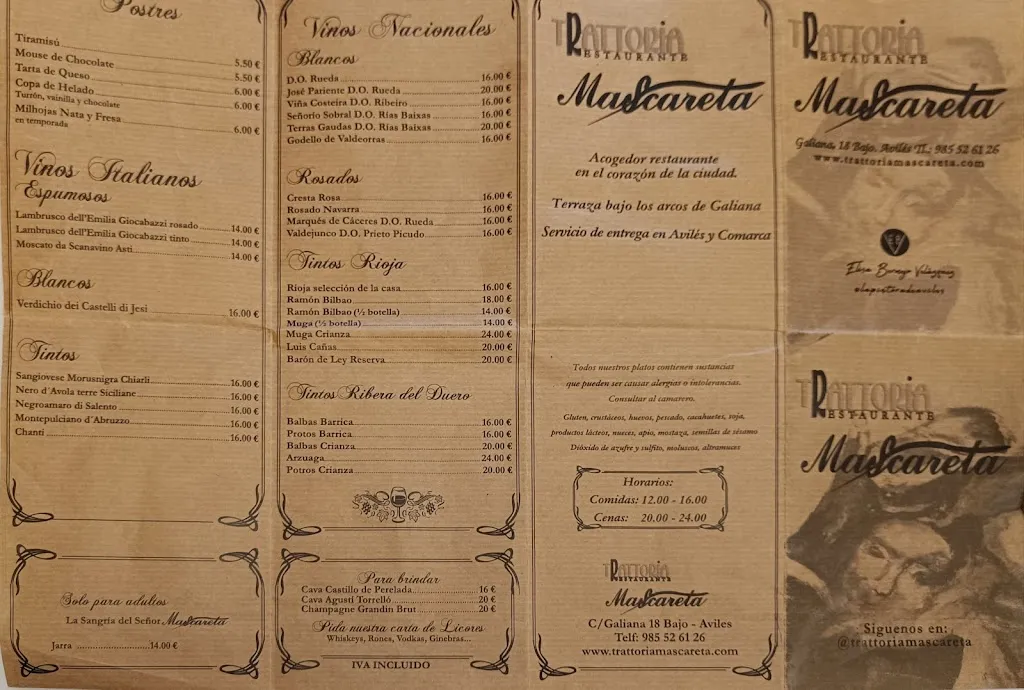 Postres
Tiramisú 5.50 €
Mouse de Chocolate 5.50 €
Tarta de Queso 6.00 €
Copa de Helado 6.00 €
Turrón, vainilla y chocolate
Milhojas Nata y Fresa 6.00 €
en temporada
Vinos Italianos
Espumosos
Lambrusco dell'Emilia Giocabazzi rosado 14.00 €
Lambrusco dell'Emilia Giocabazzi tinto 14.00 €
Moscato da Scanavino Asti 14.00 €
Blancos
Verdichio dei Castelli di Jesi 16.00 €
Tintos
Sangiovese Morusnigra Chiarli 16.00 €
Nero d´Avola terre Siciliane 16.00 €
Negroamaro di Salento 16.00 €
Montepulciano d´Abruzzo 16.00 €
Chanti 16.00 €
Solo para adultos
La Sangría del Señor Mascareta
Jarra 14.00 €
Vinos Nacionales
Blancos
D.O. Rueda 16.00 €
José Pariente D.O. Rueda 20.00 €
Viña Costeira D.O. Ribeiro 16.00 €
Señorio Sobral D.O. Rías Baixas 16.00 €
Terras Gaudas D.O. Rías Baixas 20.00 €
Godello de Valdeorras 16.00 €
Rosados
Cresta Rosa 16.00 €
Rosado Navarra 16.00 €
Marqués de Cáceres D.O. Rueda 16.00 €
Valdejunco D.O. Prieto Picudo 16.00 €
Tintos Rioja
Rioja selección de la casa 16.00 €
Ramón Bilbao 18.00 €
Ramón Bilbao (½ botella) 14.00 €
Muga (½ botella) 14.00 €
Muga Crianza 24.00 €
Luis Cañas 20.00 €
Barón de Ley Reserva 20.00 €
Tintos Ribera del Duero
Balbas Barrica 16.00 €
Protos Barrica 16.00 €
Balbas Crianza 20.00 €
Arzuaga 24.00 €
Potros Crianza 20.00 €
Para brindar
Cava Castillo de Perelada 16 €
Cava Agustí Torrelló 20 €
Champagne Grandin Brut 20 €
Pida nuestra carta de Licores
Whiskeys, Rones, Vodkas, Ginebras...
IVA INCLUIDO
TRATTORIA
RESTAURANTE
Mascareta
Acogedor restaurante
en el corazón de la ciudad.
Terraza bajo los arcos de Galiana
Servicio de entrega en Avilés y Comarca
Todos nuestros platos contienen sustancias
que pueden ser causar alergias o intolerancias.
Consultar al camarero.
Gluten, crustáceos, huevos, pescado, cacahuetes, soja,
productos lácteos, nueces, apio, mostaza, semillas de sésamo
Dióxido de azufre y sulfito, moluscos, altramuces
Horarios:
Comidas: 12.00 - 16.00
Cenas: 20.00 - 24.00
TRATTORIA
RESTAURANTE
Mascareta
C/Galiana 18 Bajo - Aviles
Telf: 985 52 61 26
www.trattoriamascareta.com
TRATTORIA
RESTAURANTE
Mascareta
Galiana, 18 Bajo. Avilés Tl.: 985 52 61 26
www.trattoriamascareta.com
TRATTORIA
RESTAURANTE
Mascareta
Síguenos en:
@trattoriamascareta